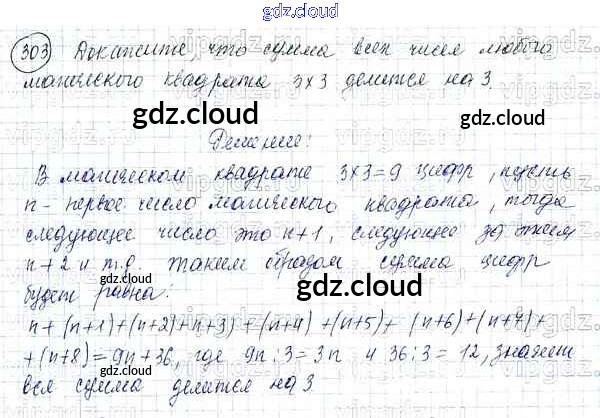 gdz.cloud
303 Докажите, что сумма всех чисел любого
магического квадрата 3×3 делится на 3.
gdz.cloud
gdz.cloud
Решение:
В магическом квадрате 3×3=9 цифр, пусть
n - первое число магического квадрата, тогда
следующее число это n+1, следующее за этим
n+2 и т.д. таким образом сумма цифр
будет равна:
gdz.cloud
gdz.cloud
n+(n+1)+(n+2)+n+3)+(n+4)+(n+5)+(n+6)+(n+7)+
+(n+8)=9n+36, где 9n:3=3n и 36:3=12, значит
вся сумма делится на 3
gdz.cloud